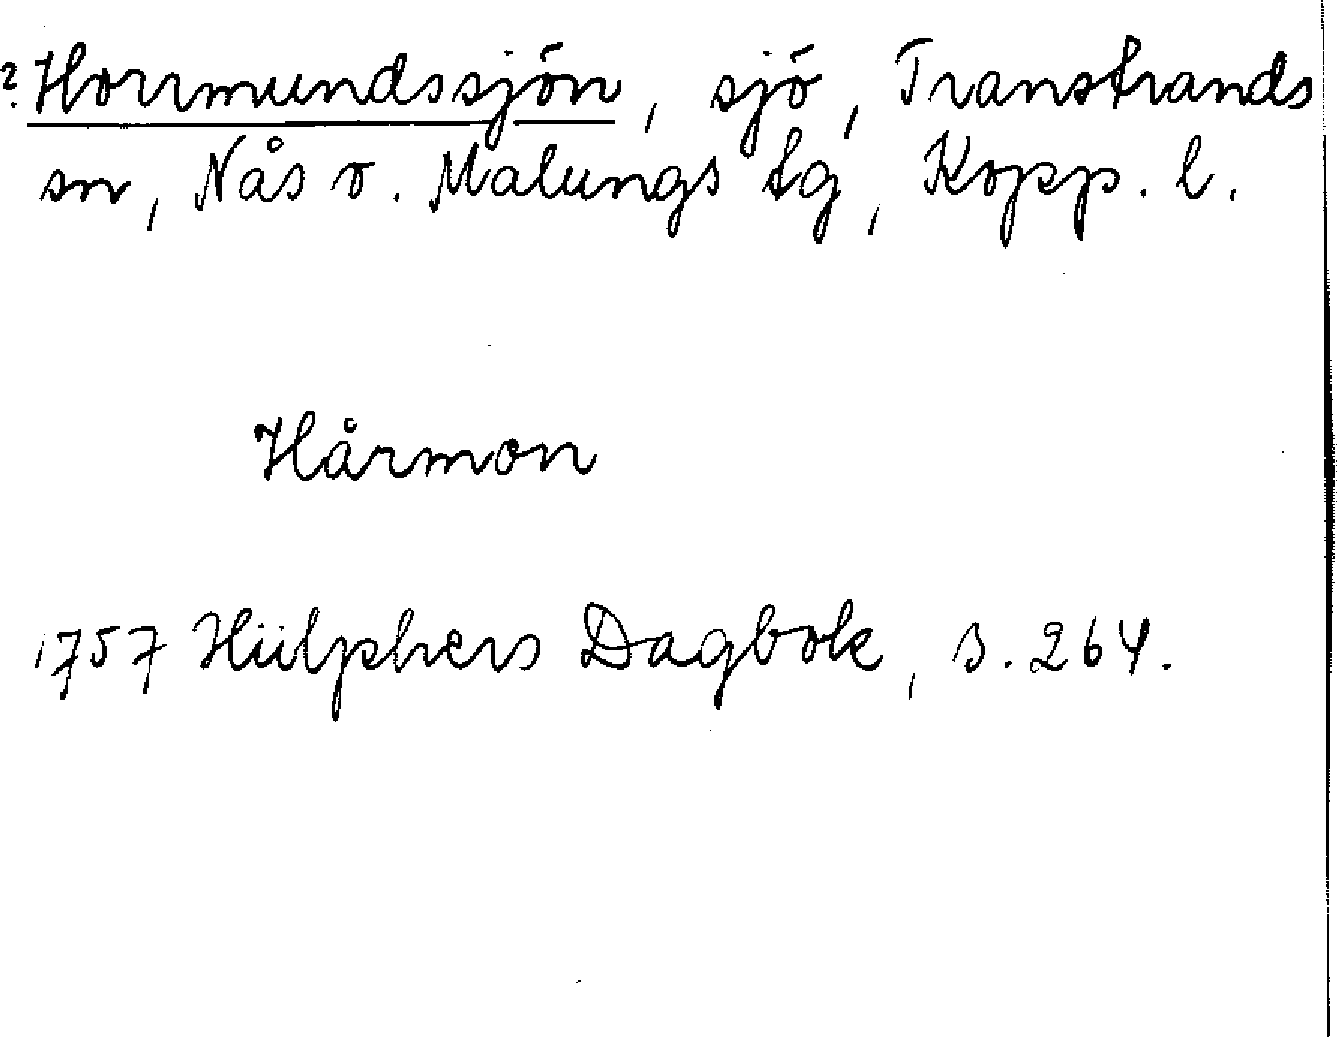 ? Horrmundssjön, sjö, Transtrands
sn, Nås o. Malungs tg, Kopp. l.
Hårmon
1757 Hülphers Dagbok, s. 264.